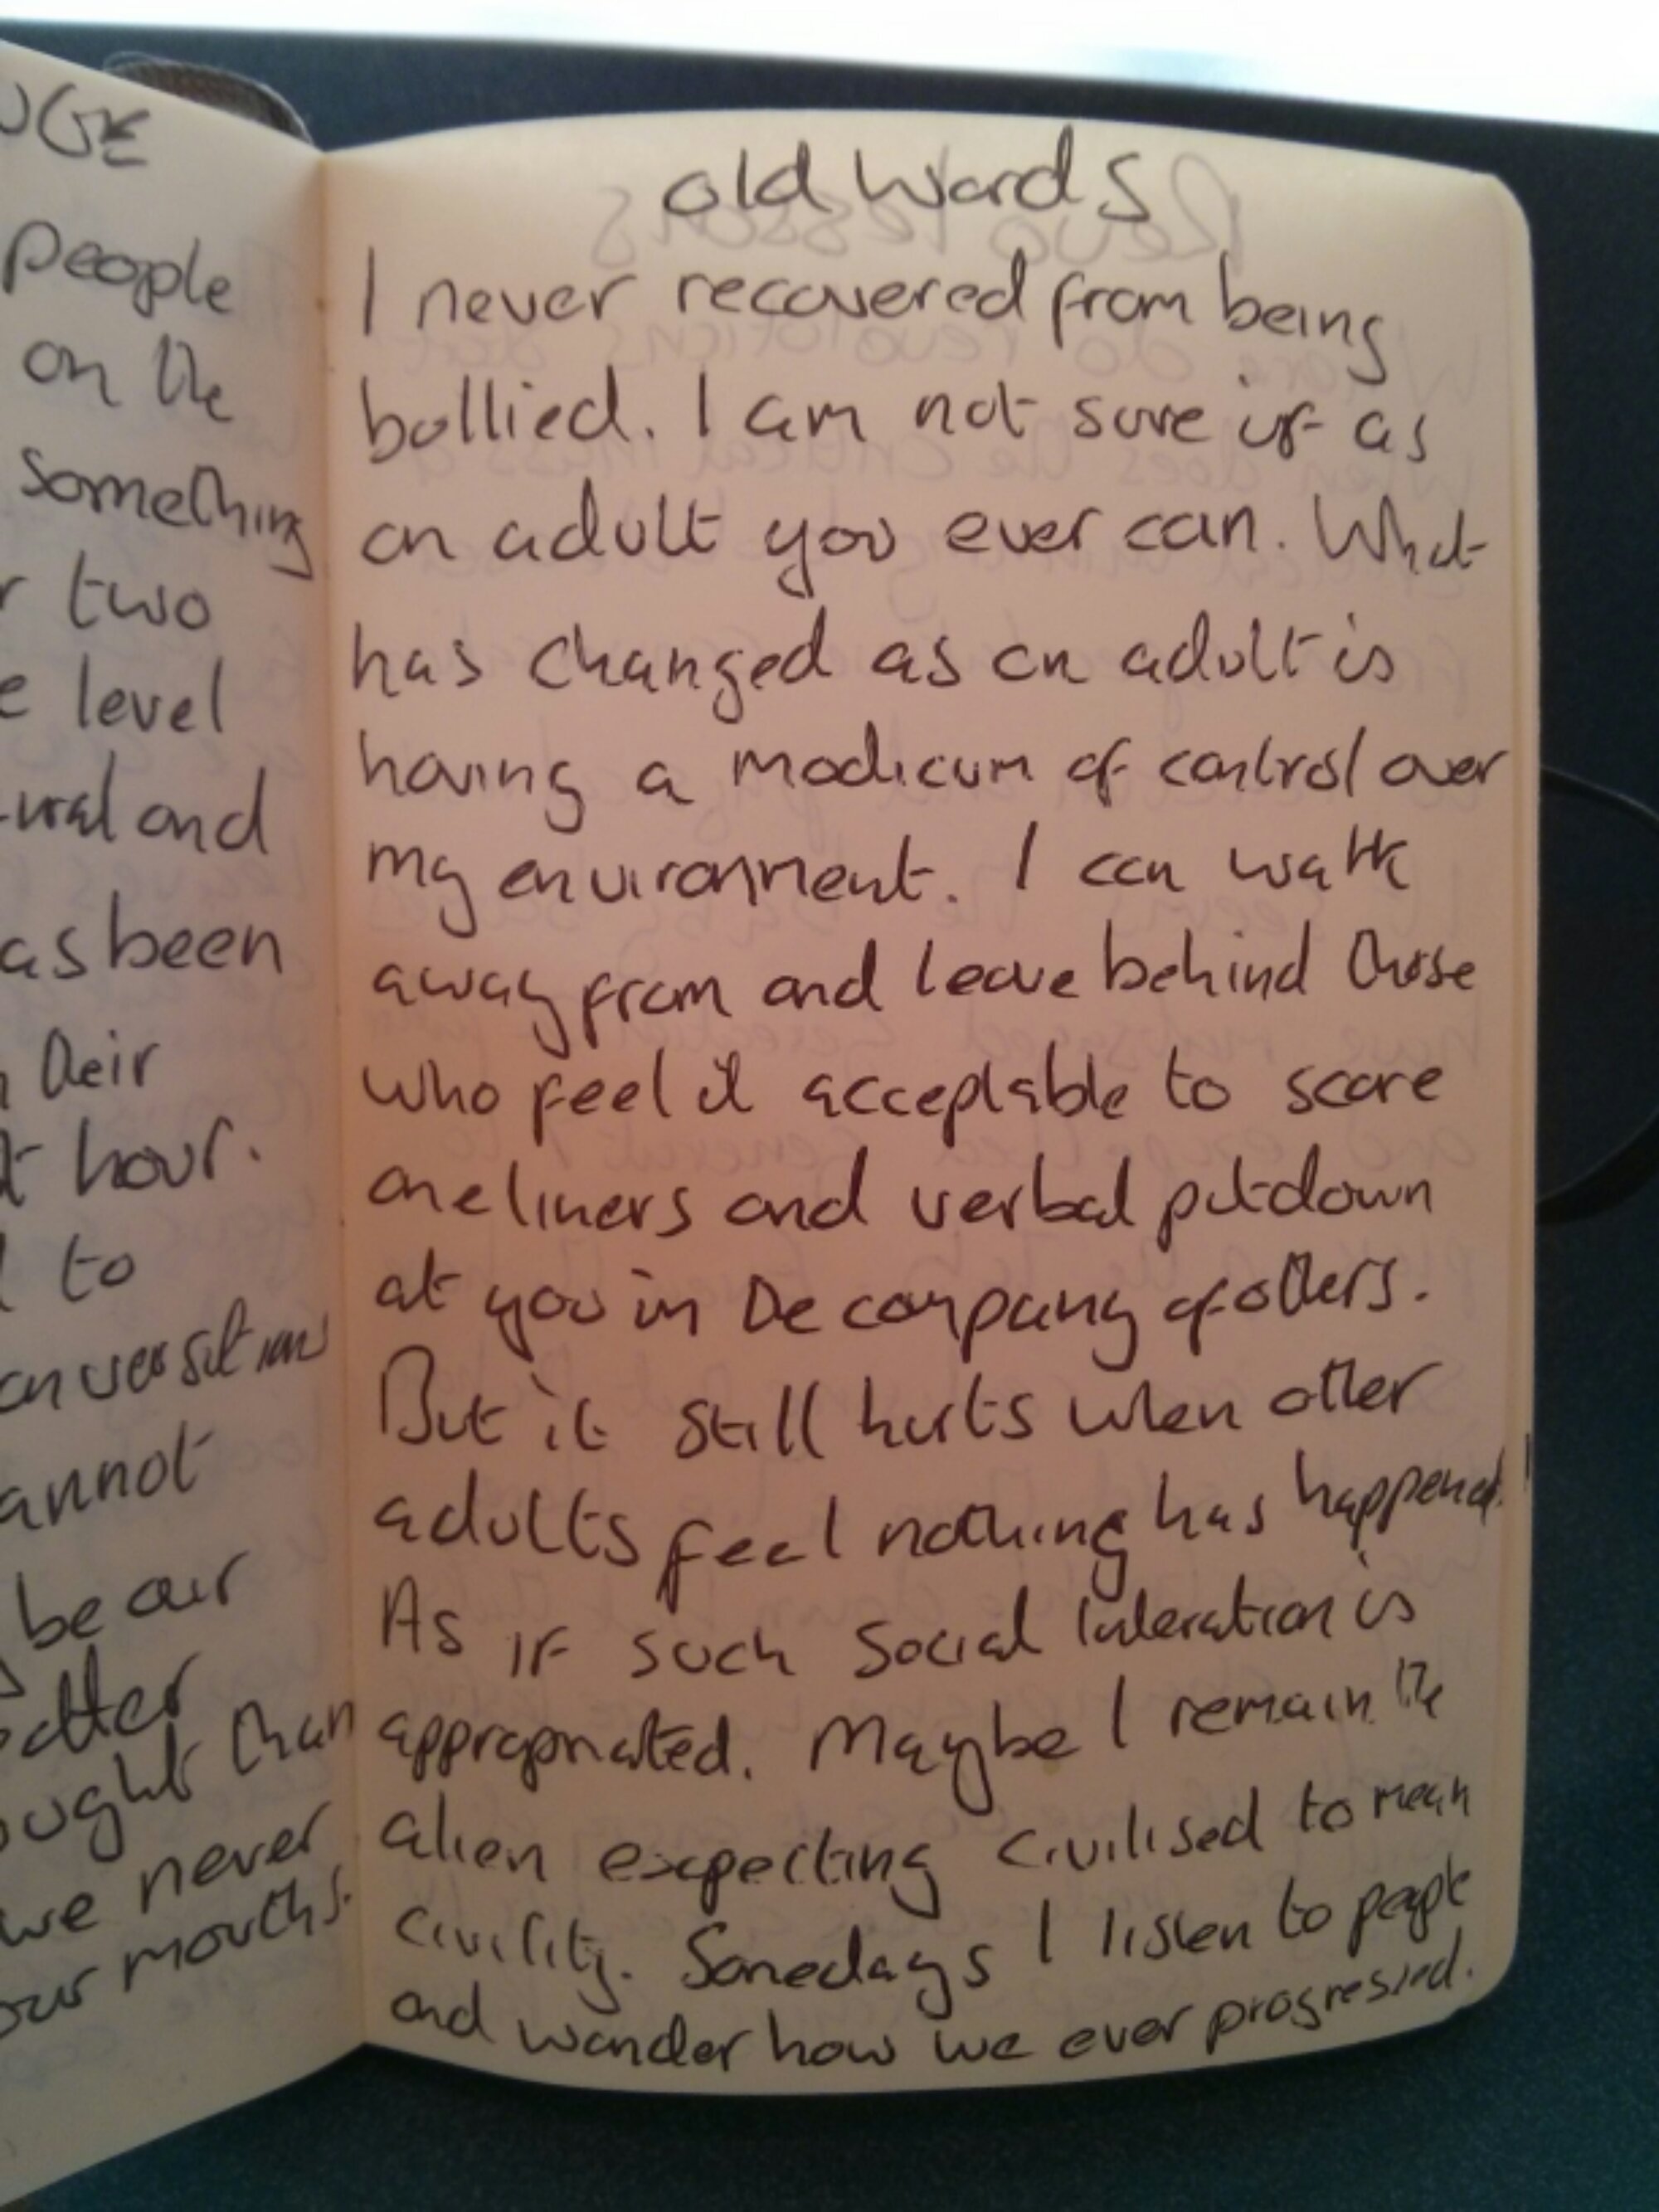 people
on the
something
two
level
and
been
their
hour.
to
be our
than
we never
our mouths.
old words
I never recovered from being
bullied. I am not sure if as
an adult you ever can. What
has changed as an adult is
having a modicum of control over
my environment. I can walk
away from and leave behind those
who feel it acceptable to score
oneliners and verbal putdown
at you in the company of others.
But it still hurts when other
adults feel nothing has happened.
As if such social interation is
appropriated. Maybe I remain the
alien expecting civilised to mean
civility. Somedays I listen to people
and wonder how we ever progressed.